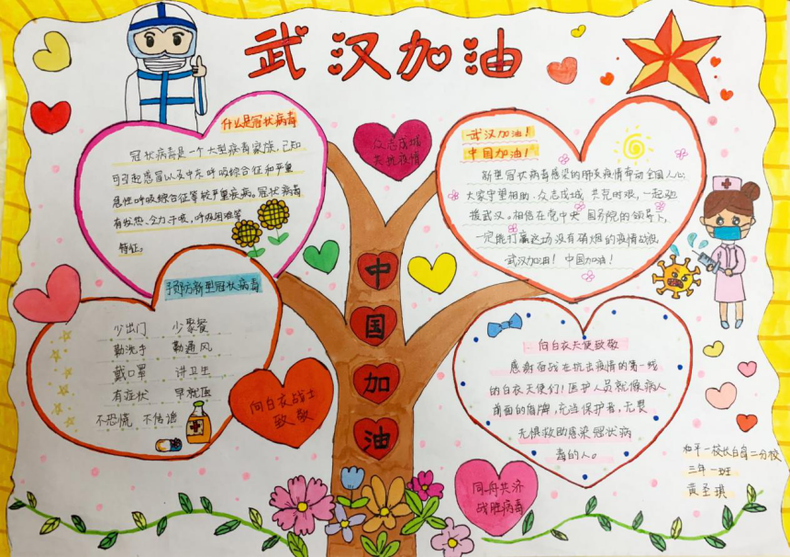 武汉加油
什么是冠状病毒
冠状病毒是一个大型病毒家族,己知
可引起感冒以及中东呼吸综合征和严重
急性呼吸综合征等较严重疾病。冠状病毒
有发热、全力、干咳、呼吸困难等
特征。
众志成城
共抗疫情
武汉加油!
中国加油!
新型冠状病毒感染的肺炎疫情牵动全国人心
大家守望相助、众志成城、共克时艰,一起驰
援武汉。相信在党中央 国务院的领导下,
一定能打赢这场没有硝烟的疫情
武汉加油! 中国加油!
预防新型冠状病毒
少出门 少聚餐
勤洗手 勤通风
戴口罩 讲卫生
有症状 早就医
不恐慌 不传谣
向白衣战士
致敬
中
国
加
油
向白衣天使致敬
感谢奋战在抗击疫情的第一线
的白衣天使们!医护人员就像病人
前面的盾牌,充当保护者,无畏
无惧救助感染冠状病
毒的人。
同舟共济
战胜病毒
和平一校长白岛二分校
三年一班
黄圣琪